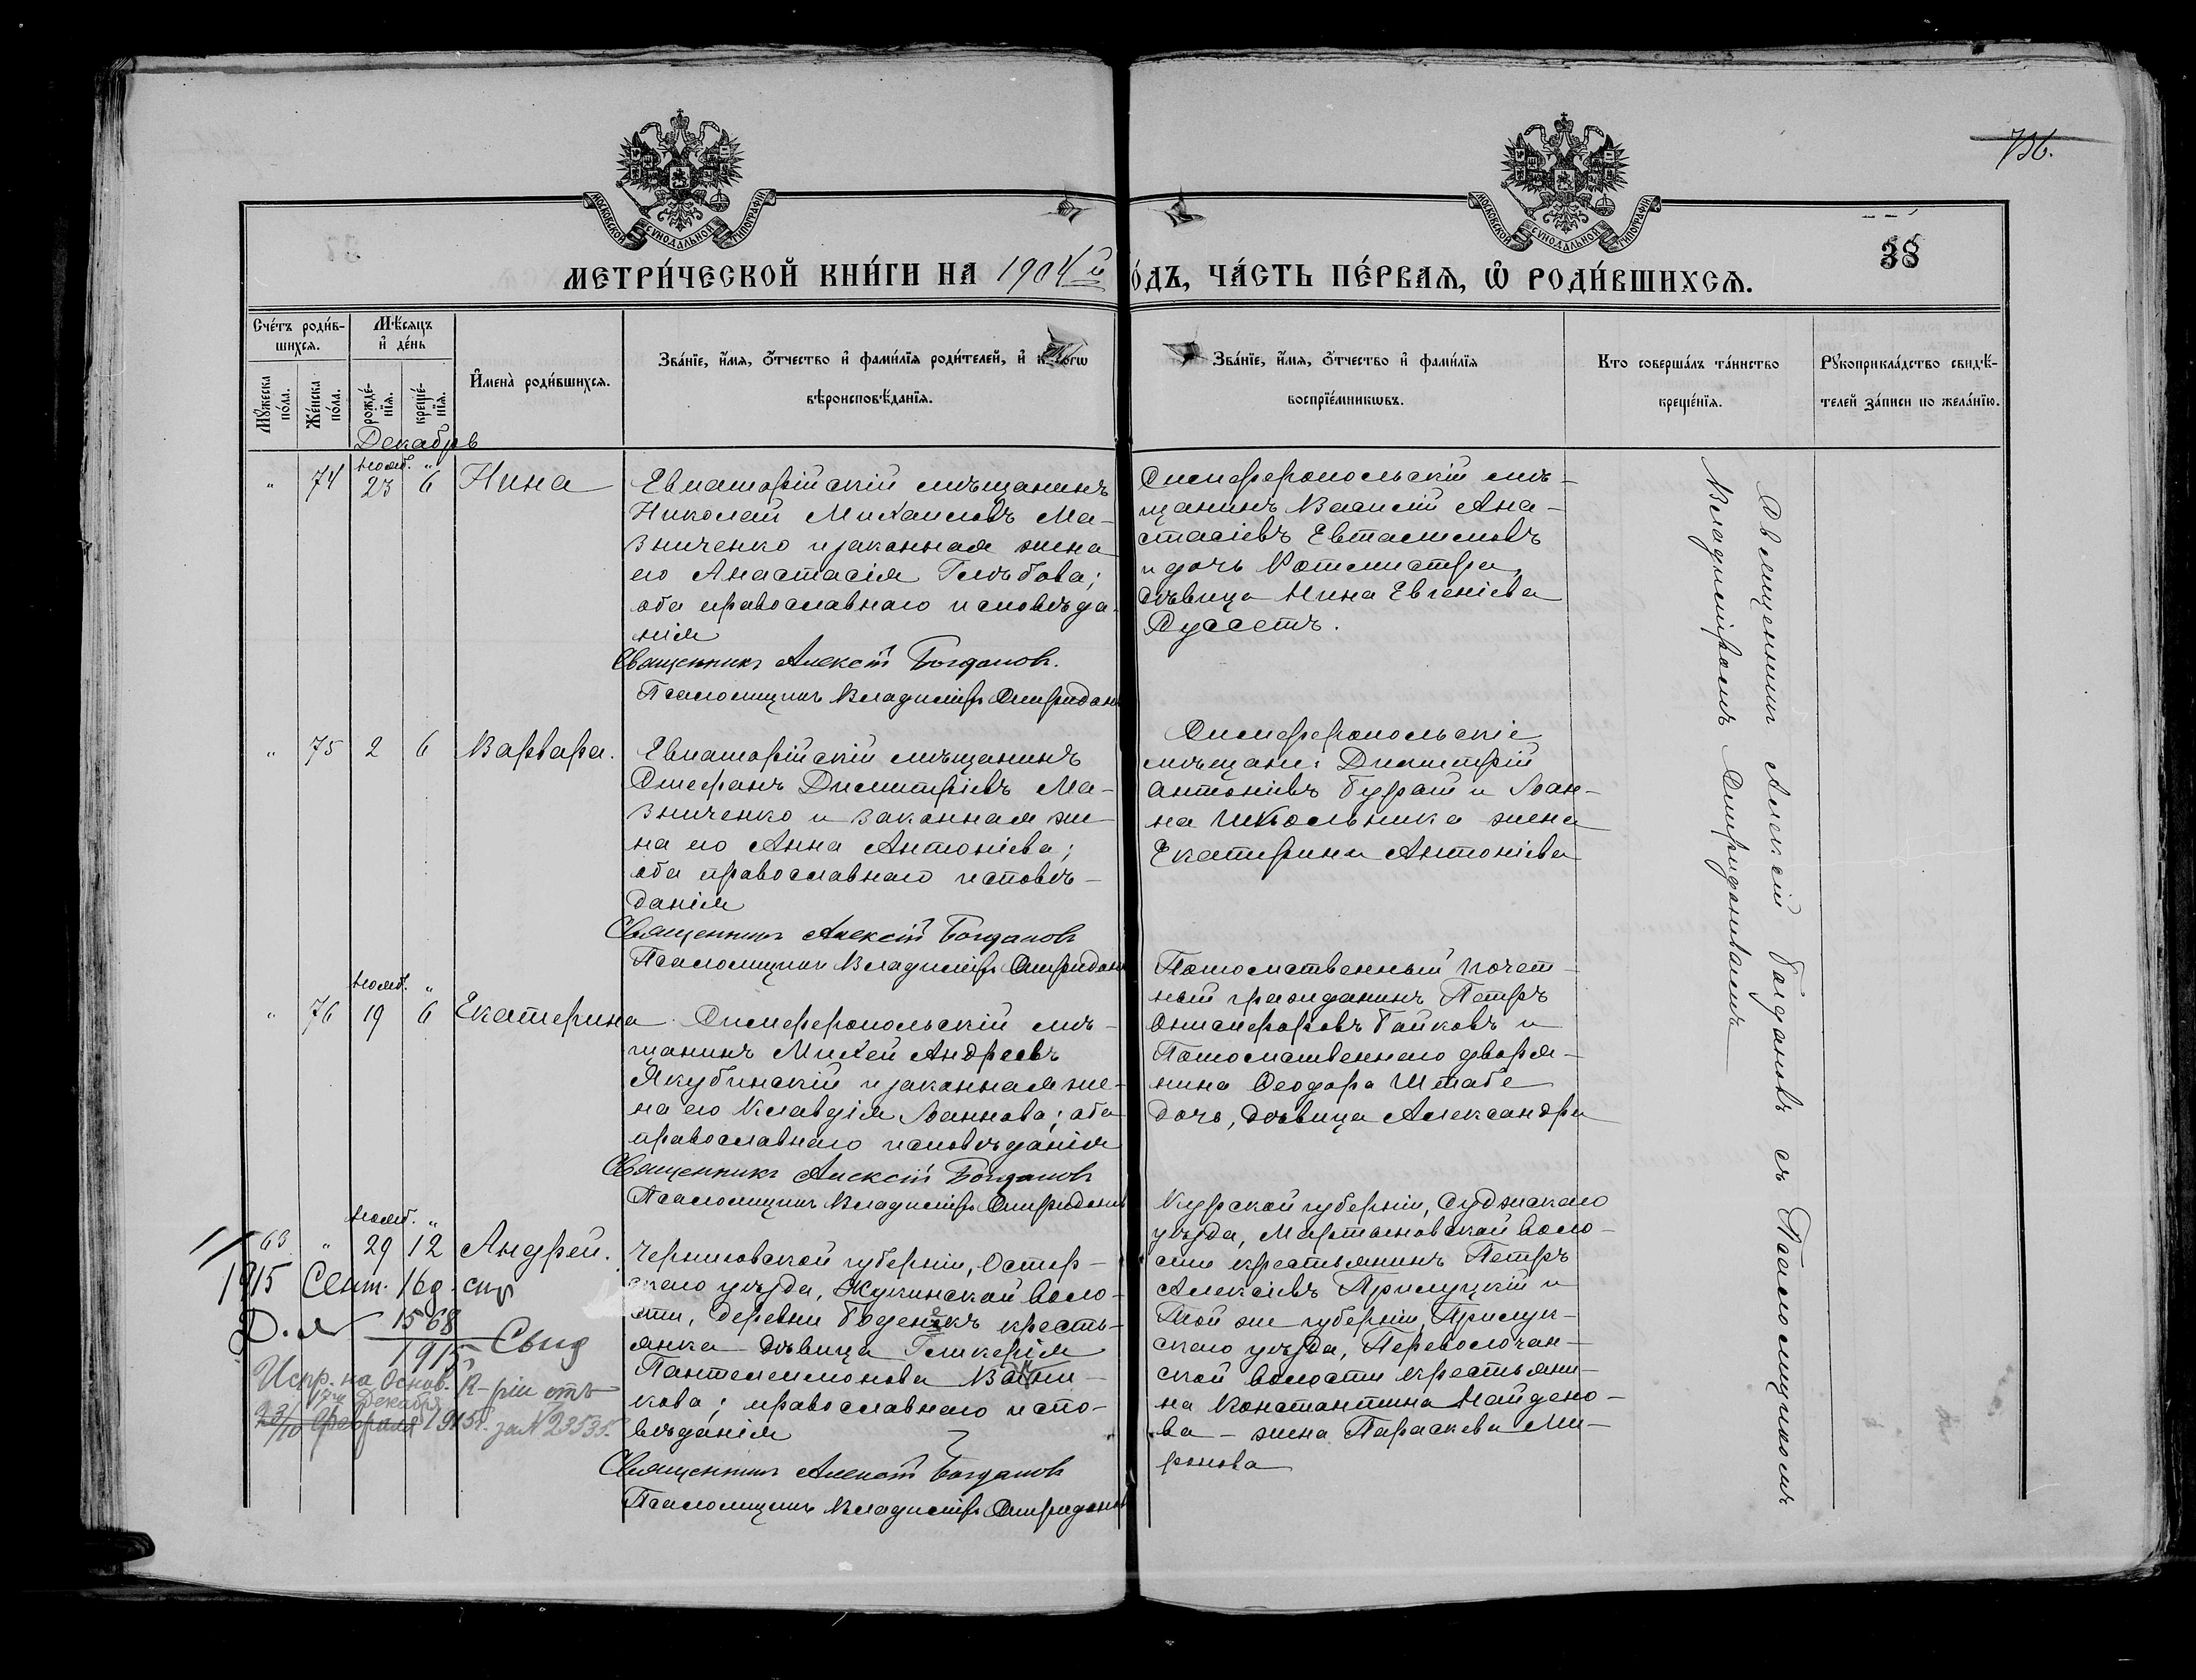 736.
МОСКОВСКОЙ СѴНОДАЛЬНОЙ ТИПОГРАФІИ
МОСКОВСКОЙ СѴНОДАЛЬНОЙ ТИПОГРАФІИ
38
МЕТРИ́ЧЕСКОЙ КНИ́ГИ НА 1904й
О́ДЪ, ЧА́СТЬ ПЕ́РВАЯ, Ѡ҆ РОДИ́ВШИХСѦ.
Сче́тъ роди́в-
шихсѧ.
Мꙋ́жеска по́ла.
Же́нска по́ла.
Мѣ́сѧцъ
и҆ де́нь
рожде́-
нїѧ.
креще́-
нїѧ.
И҆мена̀ роди́вшихсѧ.
Зва́нїе, и҆́мѧ, ѻ҆́тчество и҆ фами́лїѧ роди́телей, и҆ ко́егѡ
вѣроисповѣ́данїѧ.
Зва́нїе, и҆́мѧ, ѻ҆́тчество и҆ фами́лїѧ
воспрїе́мникѡвъ.
Кто соверша́лъ та́инство
креще́нїѧ.
Рꙋкоприкла́дство свидѣ́-
телей за́писи по жела́нїю.
Декабрь
" 74 Нояб. 23 " 6 Нина
Евпаторійскій мѣщанинъ
Николай Михаиловъ Ма-
зниченко и законная жена
его Анастасія Глѣбова;
оба православнаго исповѣда-
нія
Священникъ Алексій Богдановъ.
Псаломщикъ Владиміръ Спиридонов
Симферопольскій мѣ-
щанинъ Василій Ана-
стасіевъ Евтасиловъ
и дочь Ротмистра,
дѣвица Нина Евгеніева
Руссетъ.
" 75 2 6 Варвара.
Евпаторійскій мѣщанинъ
Стефанъ Димитріевъ Ма-
зниченко и законная же-
на его Анна Антоніева;
оба православнаго исповѣ-
данія
Священникъ Алексій Богдановъ
Псаломщикъ Владиміръ Спиридонов
Симферопольскіе
мѣщане: Димитрій
Антоніевъ Бурый и Іоан-
на Школьника жена
Екатерина Антоніева
" 76 Нояб. 19 " 6 Екатерина
Симферопольскій мѣ-
щанинъ Михей Андреевъ
Якубинскій и законная же-
на его Клавдія Іоаннова; оба
православнаго исповѣданія
Священникъ Алексій Богдановъ
Псаломщикъ Владиміръ Спиридонов
Потомственный почет-
ный гражданинъ Петръ
Онисифоровъ Байковъ и
Потомственнаго дворя-
нина Ѳеодора Штабе
дочь, дѣвица Александра
63 " Нояб. 29 " 12 Андрей.
Черниговской губерніи, Остер-
скаго уѣзда, Жукинской воло-
сти, деревни Боденекъ кресть-
янка дѣвица Гликерія
Пантелеимонова
кова; православнаго испо-
вѣданія
Священникъ Алексій Богдановъ
Псаломщикъ Владиміръ Спиридонов
Курской губерніи, Суджскаго
уѣзда, Мартыновской воло-
сти крестьянинъ Петръ
Алексіевъ Прилуцкій и
Той же губерніи, Прилук-
скаго уѣзда, Переволочан-
ской волости крестьяни-
на Константина Найдено-
ва - жена Параскева Ми-
ронова
1915 Сент. 16 д.
Д. № 1568
1915 Свид
Испр. на основ. К-ріи отъ
17го Декабря
Февраля 1915г. за № 23535.
Священникъ Алексій Богдановъ съ Псаломщикомъ
Владиміромъ Спиридоновымъ